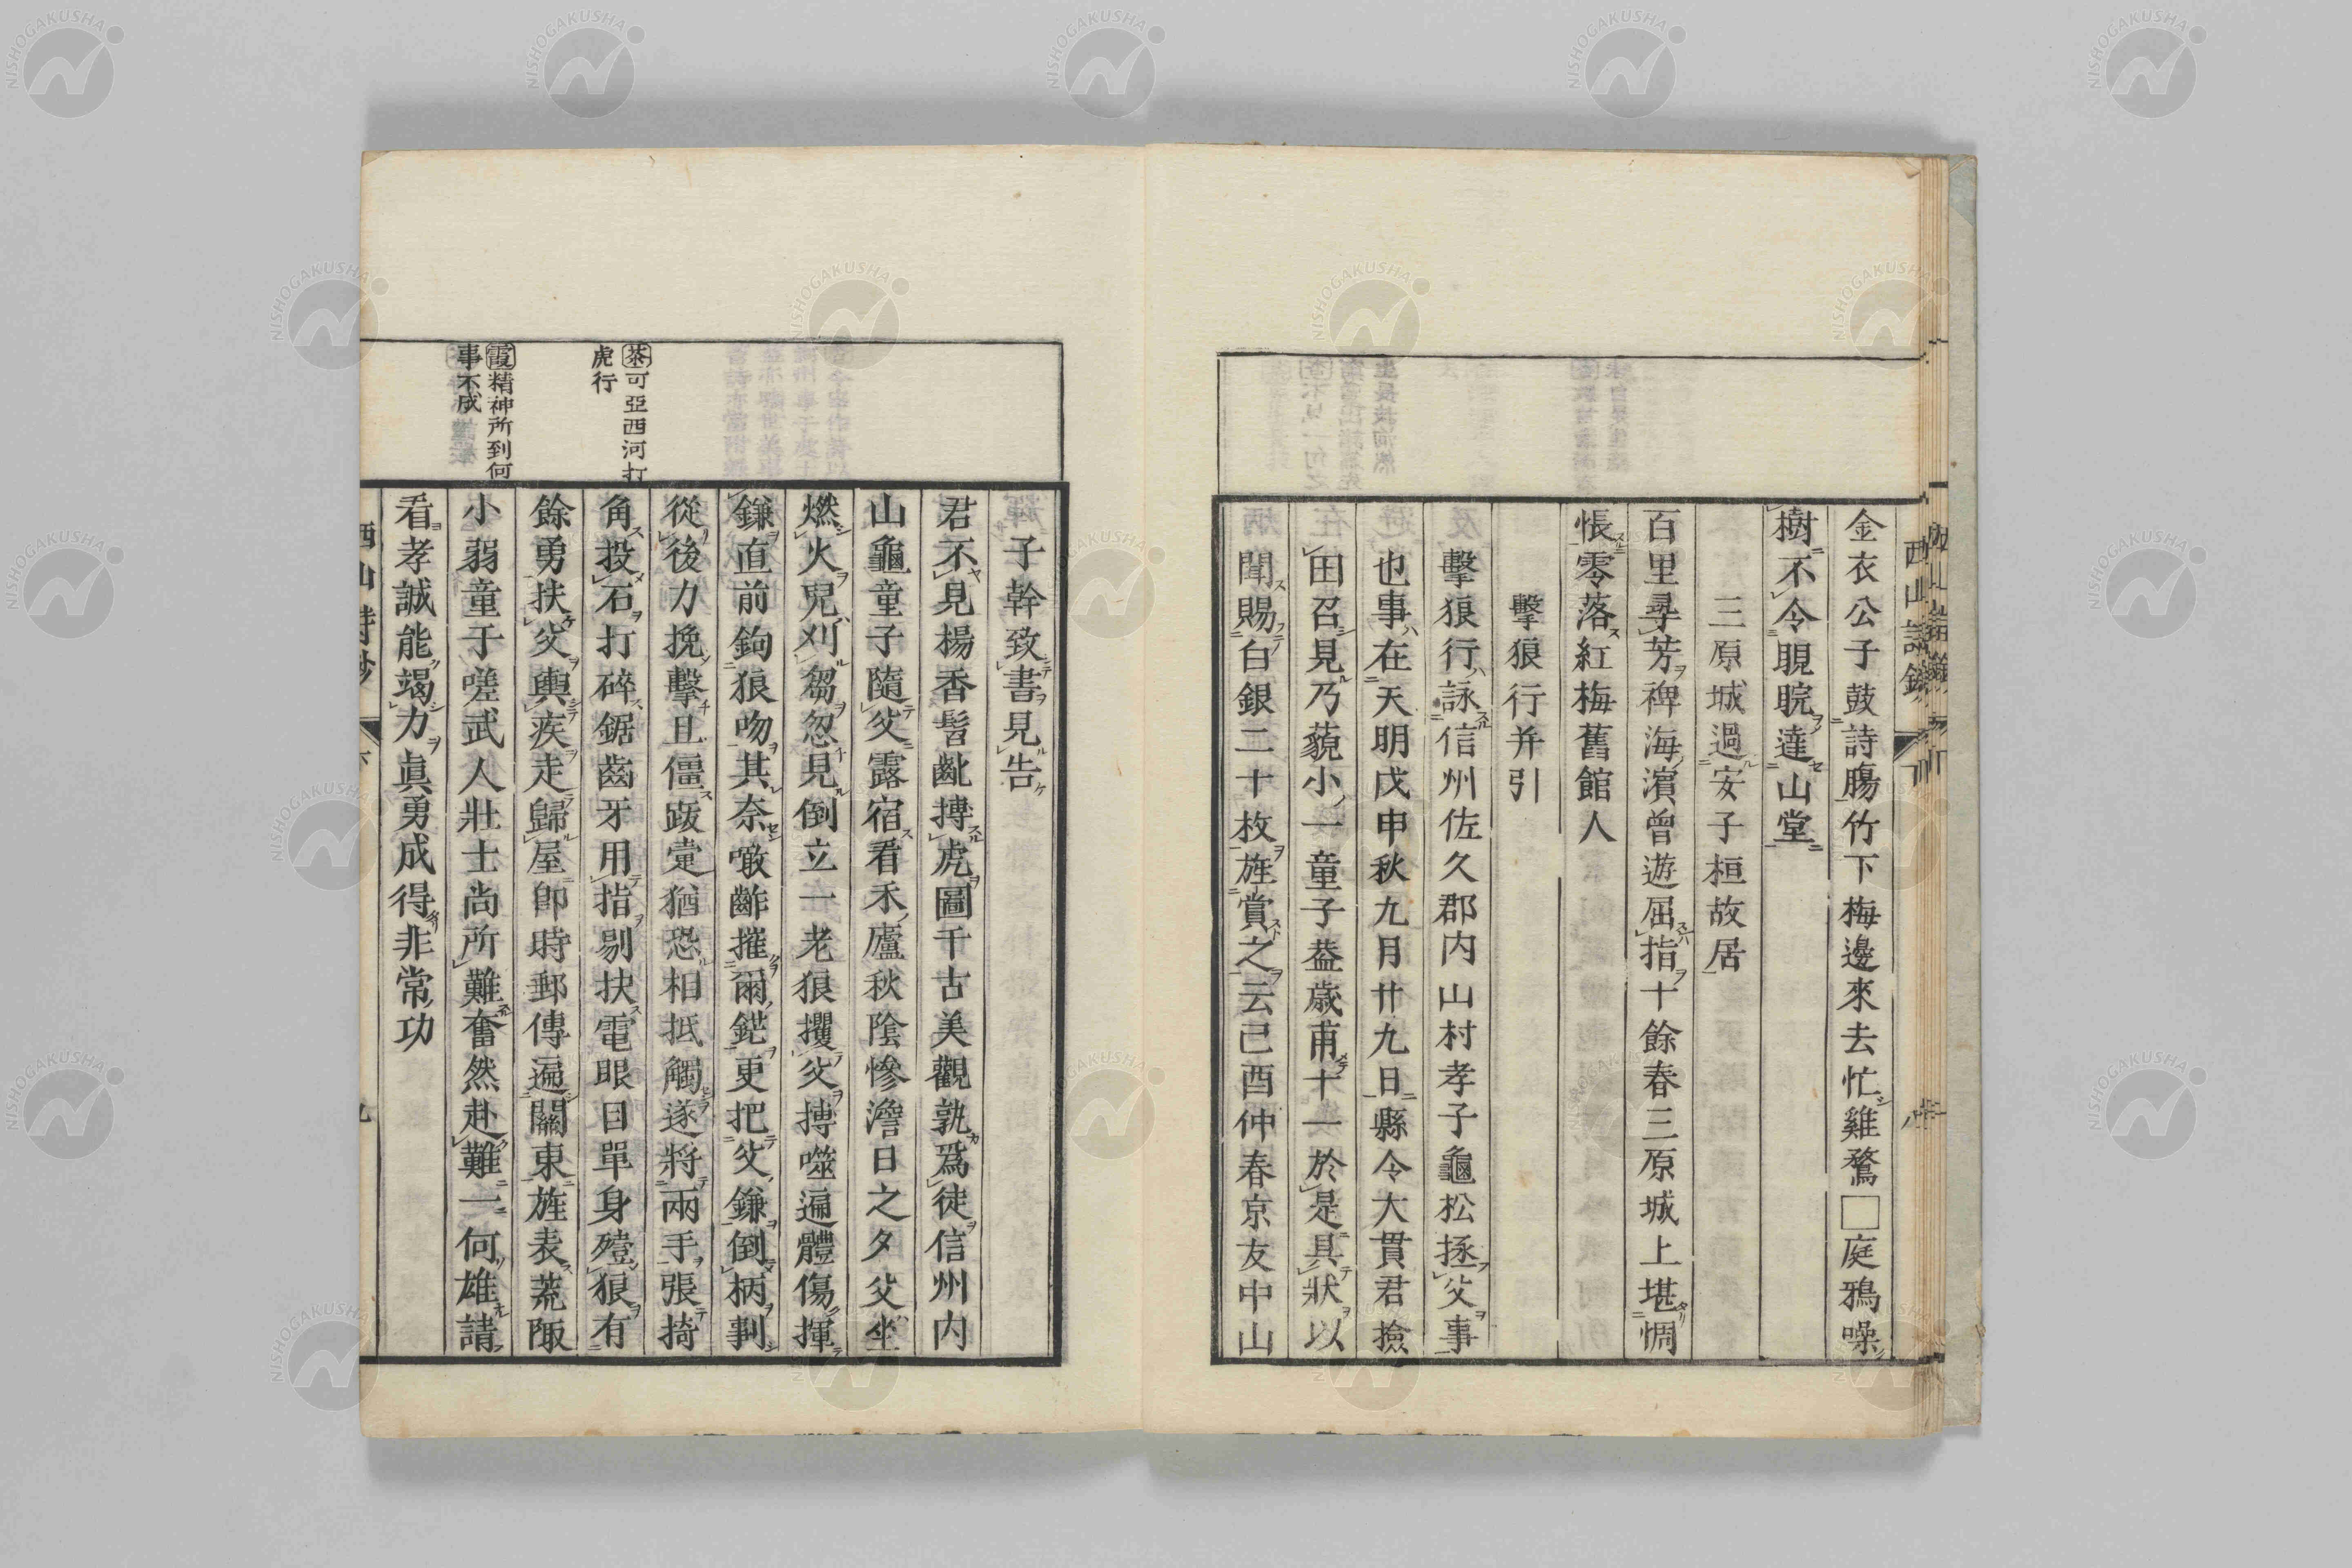 金衣公子鼓詩膓竹下梅邊來去忙雞鶩□庭鴉噪
樹不令睍睆達山堂
三原城過安子桓故居
百里尋芳裨海濱曾遊屈指十餘春三原城上堪惆
悵零落紅梅舊館人
擊狼行并引
擊狼行詠信州佐久郡内山村孝子龜松拯父事
也事在天明戊申秋九月廿九日縣令大貫君撿
田召見乃藐小一童子葢歳甫十一於是具狀以
聞賜白銀二十枚旌賞之云己酉仲春京友中山
子幹致書見告
君不見楊香髫齔搏虎圖千古美觀孰爲徒信州内
山龜童子隨父露宿看禾廬秋陰慘澹日之夕父坐
燃火兒刈芻忽見倒立一老狼攫父搏噬遍體傷揮
鎌直前鉤狼吻其奈噉齰摧爾鋩更把父鎌倒柄剚
從後力挽擊且僵跋疐猶恐相抵觸遂將兩手張掎
角投石打碎鋸齒牙用指剔抉電眼目單身殪狼有
餘勇扶父輿疾走歸屋卽時郵傳遍關東旌表荒陬
小弱童于嗟武人壯士尚所難奮然赴難一何雄請
看孝誠能竭力眞勇成得非常功
茶可亞西河打
虎行
霞精神所到何
事不成
西山詩鈔
NISHOGAKUSHA